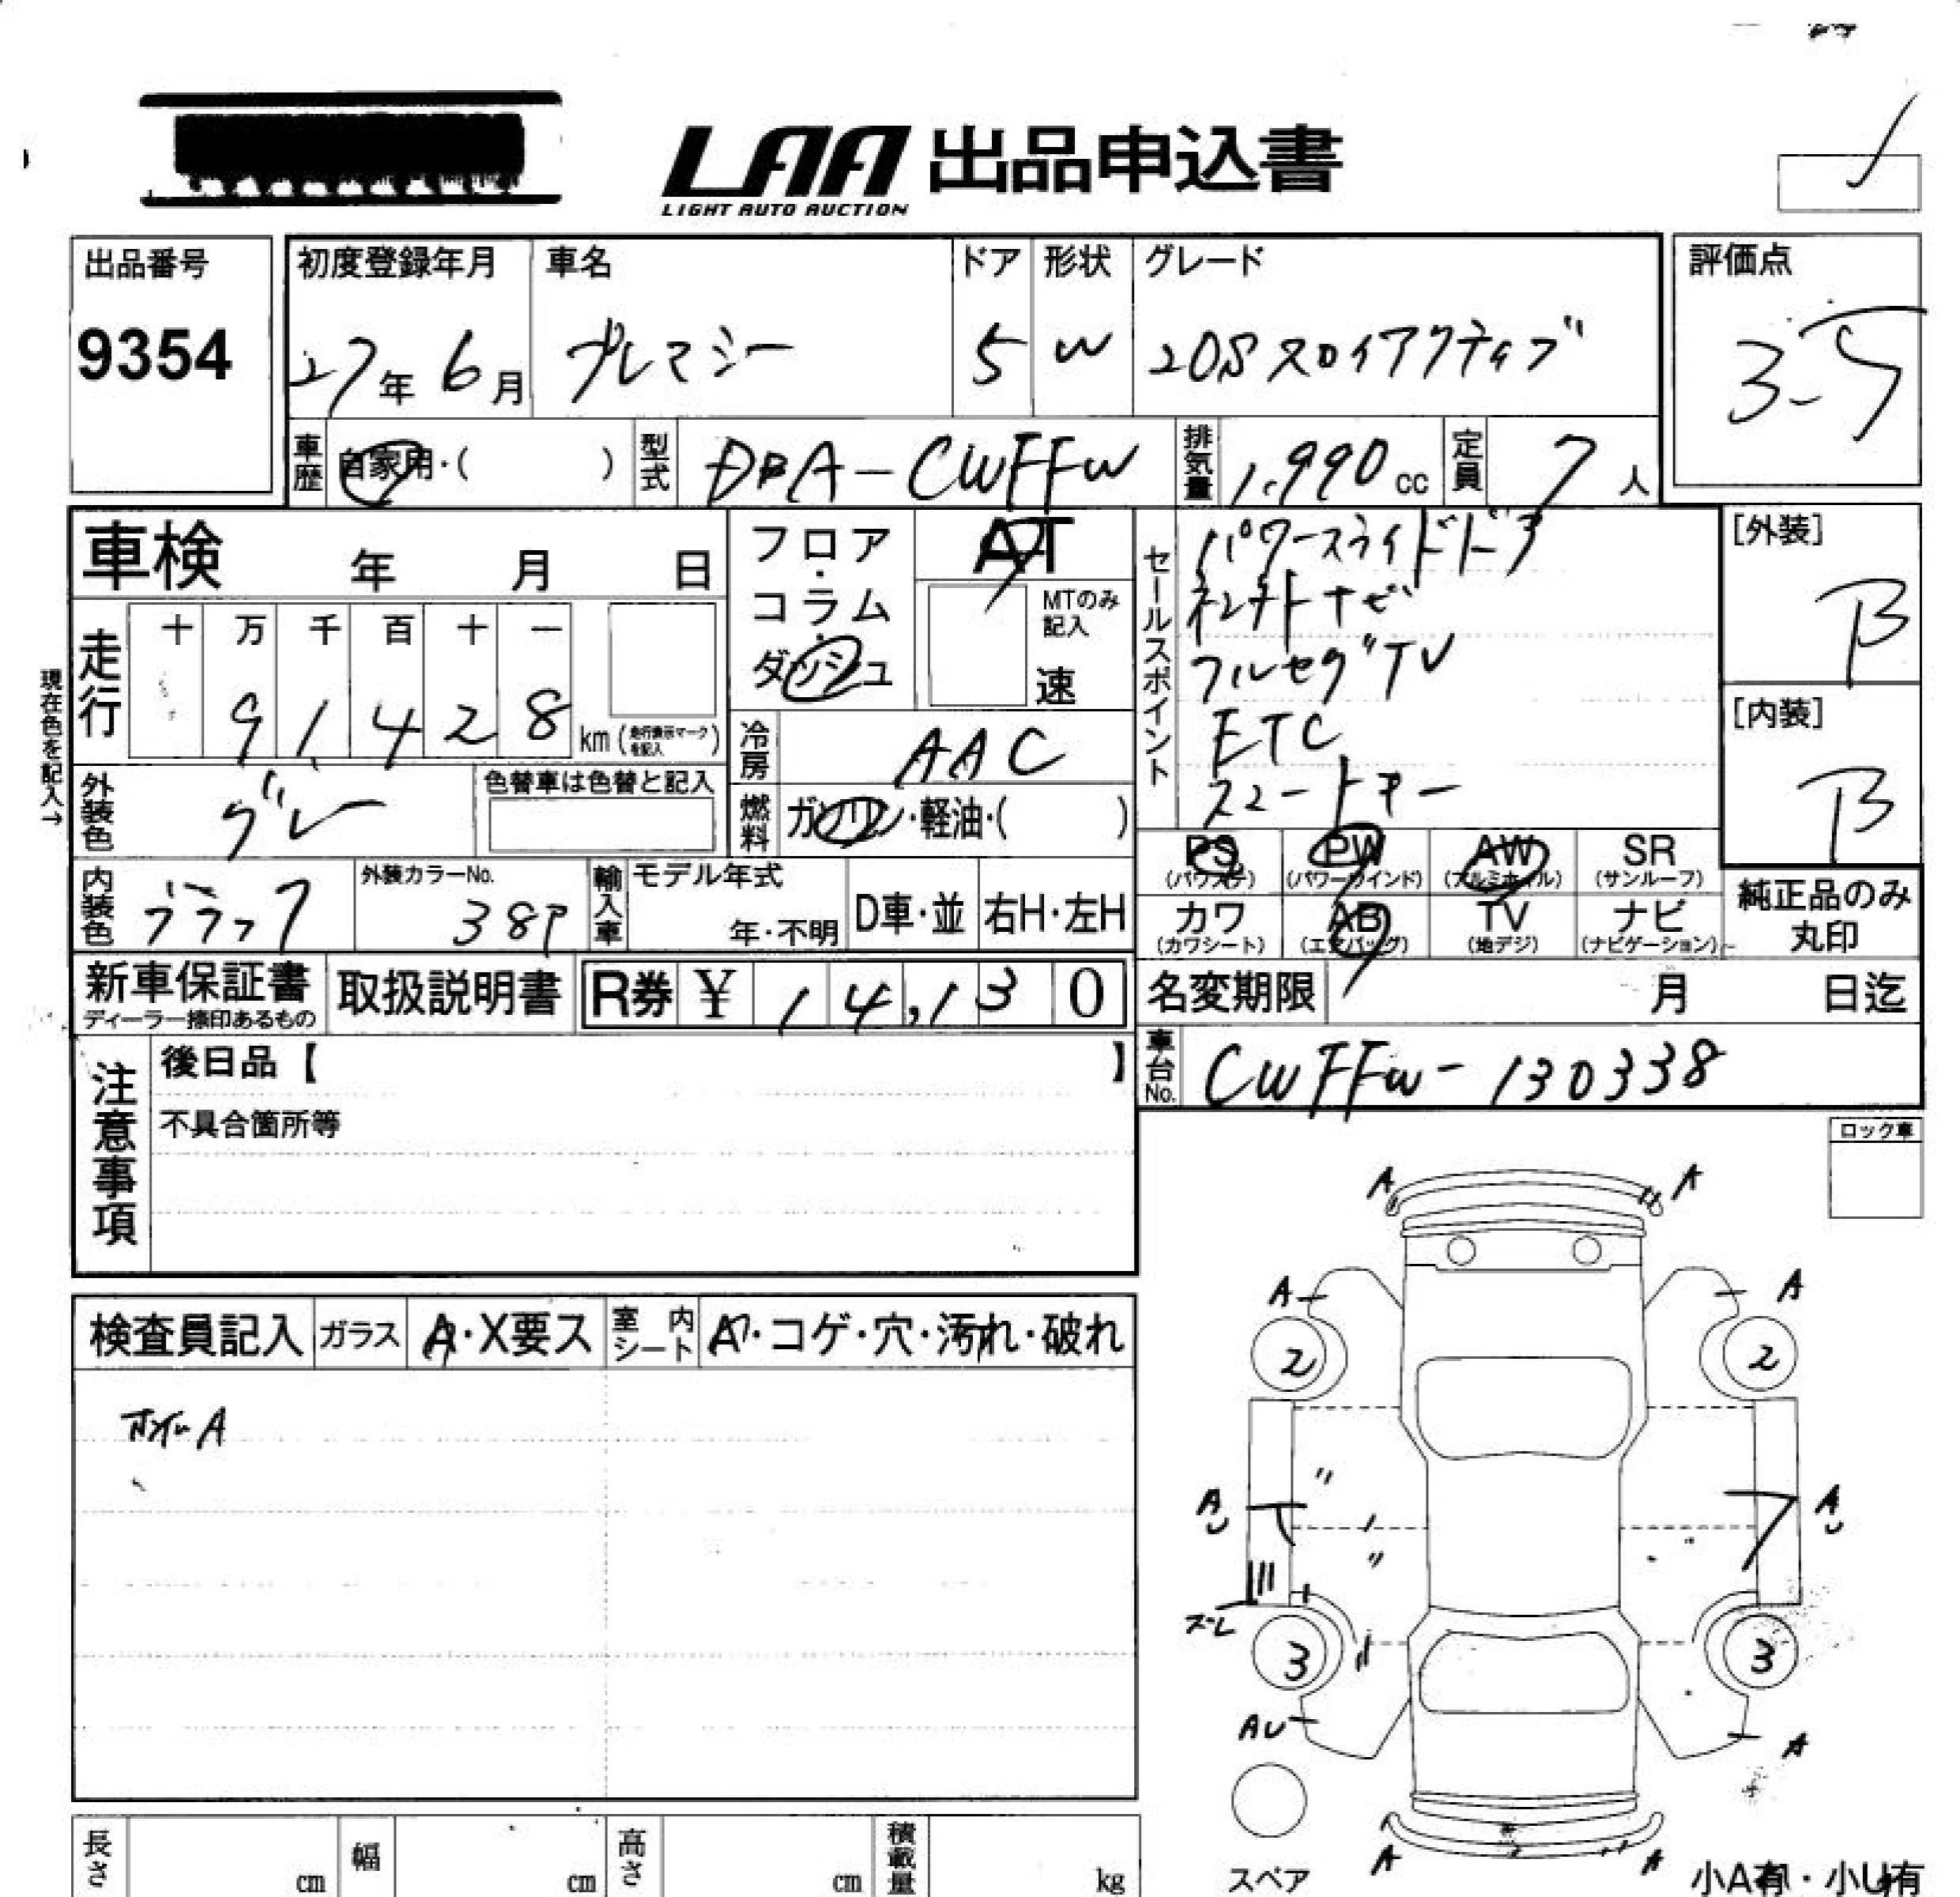 LAA 出品申込書
LIGHT AUTO AUCTION
出品番号
9354
初度登録年月
27年 6月
車名
プレマシー
ドア
5
形状
W
グレード
20S スカイアクティブ
評価点
3.5
車歴
自家用・( )
型式
DBA-CWFFW
排気量
1.990 cc
定員
7人
車検 年 月 日
走行
十 万 千 百 十 一
9 1 4 2 8
km (走行表示マークを記入)
現在色を記入→
フロア・コラム・ダッシュ
AT
MTのみ記入
速
冷房
AAC
燃料
ガソリン・軽油・( )
セールスポイント
パワースライドドア
フルセグTV
ETC
スマートキー
[外装]
B
[内装]
B
外装色
グレー
色替車は色替と記入
内装色
ブラック
外装カラーNo.
38P
輸入車
モデル年式
年・不明
D車・並
右H・左H
PS
(パワステ)
PW
(パワーウインド)
AW
(アルミホイル)
SR
(サンルーフ)
カワ
(カワシート)
AB
(エアバッグ)
TV
(地デジ)
ナビ
(ナビゲーション)
純正品のみ
丸印
新車保証書
ディーラー捺印あるもの
取扱説明書
R券 ¥ 14,130
名変期限 月 日迄
車台No.
CWFFW-130338
注意事項
後日品【 】
不具合箇所等
ロック車
検査員記入
ガラス
A・X要ス
室内シート
A・コゲ・穴・汚れ・破れ
ホイルA
A
A
A
A
2
2
A
A
3
3
AU
A
A
A
スペア
小A有・小U有
長さ
cm
幅
cm
高さ
cm
積載量
kg